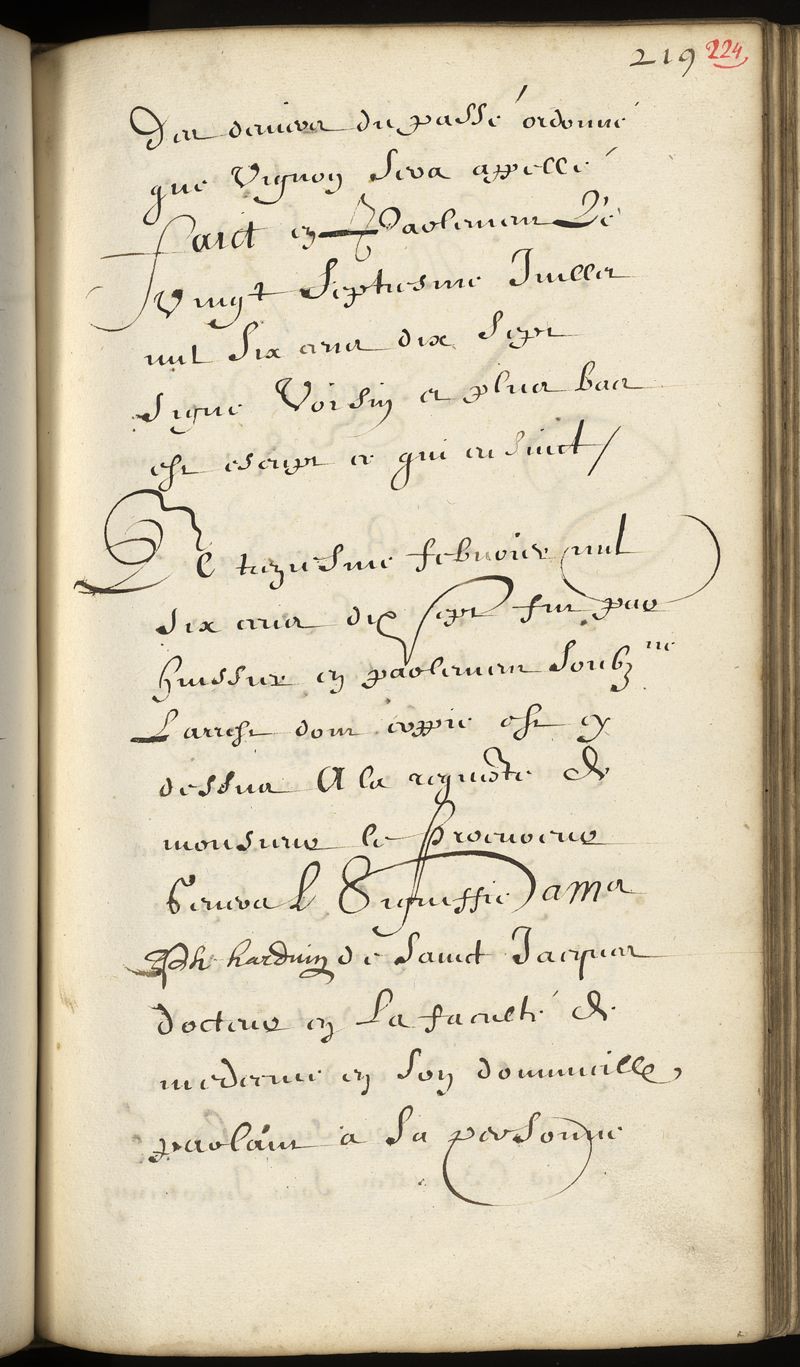 219 224
Des deniers du passé ordonné
que Vignon sera appellé
faict en Parlement Le
vingt septiesme Juillet
mil six cens dix sept
signé Voisin et plus bas
est escript ce qui ensuict /
Le treziesme febvrier mil
six cens dix sept fut par
huissier en parlement soubz ne
Larrest dont coppie est cy
dessus A la requeste de
monsieur le Procureur
General Signiffié a me
Ph harduin de Sainct Jacques
docteur en La faculté de
medecine en son dommicille
parlant a sa personne